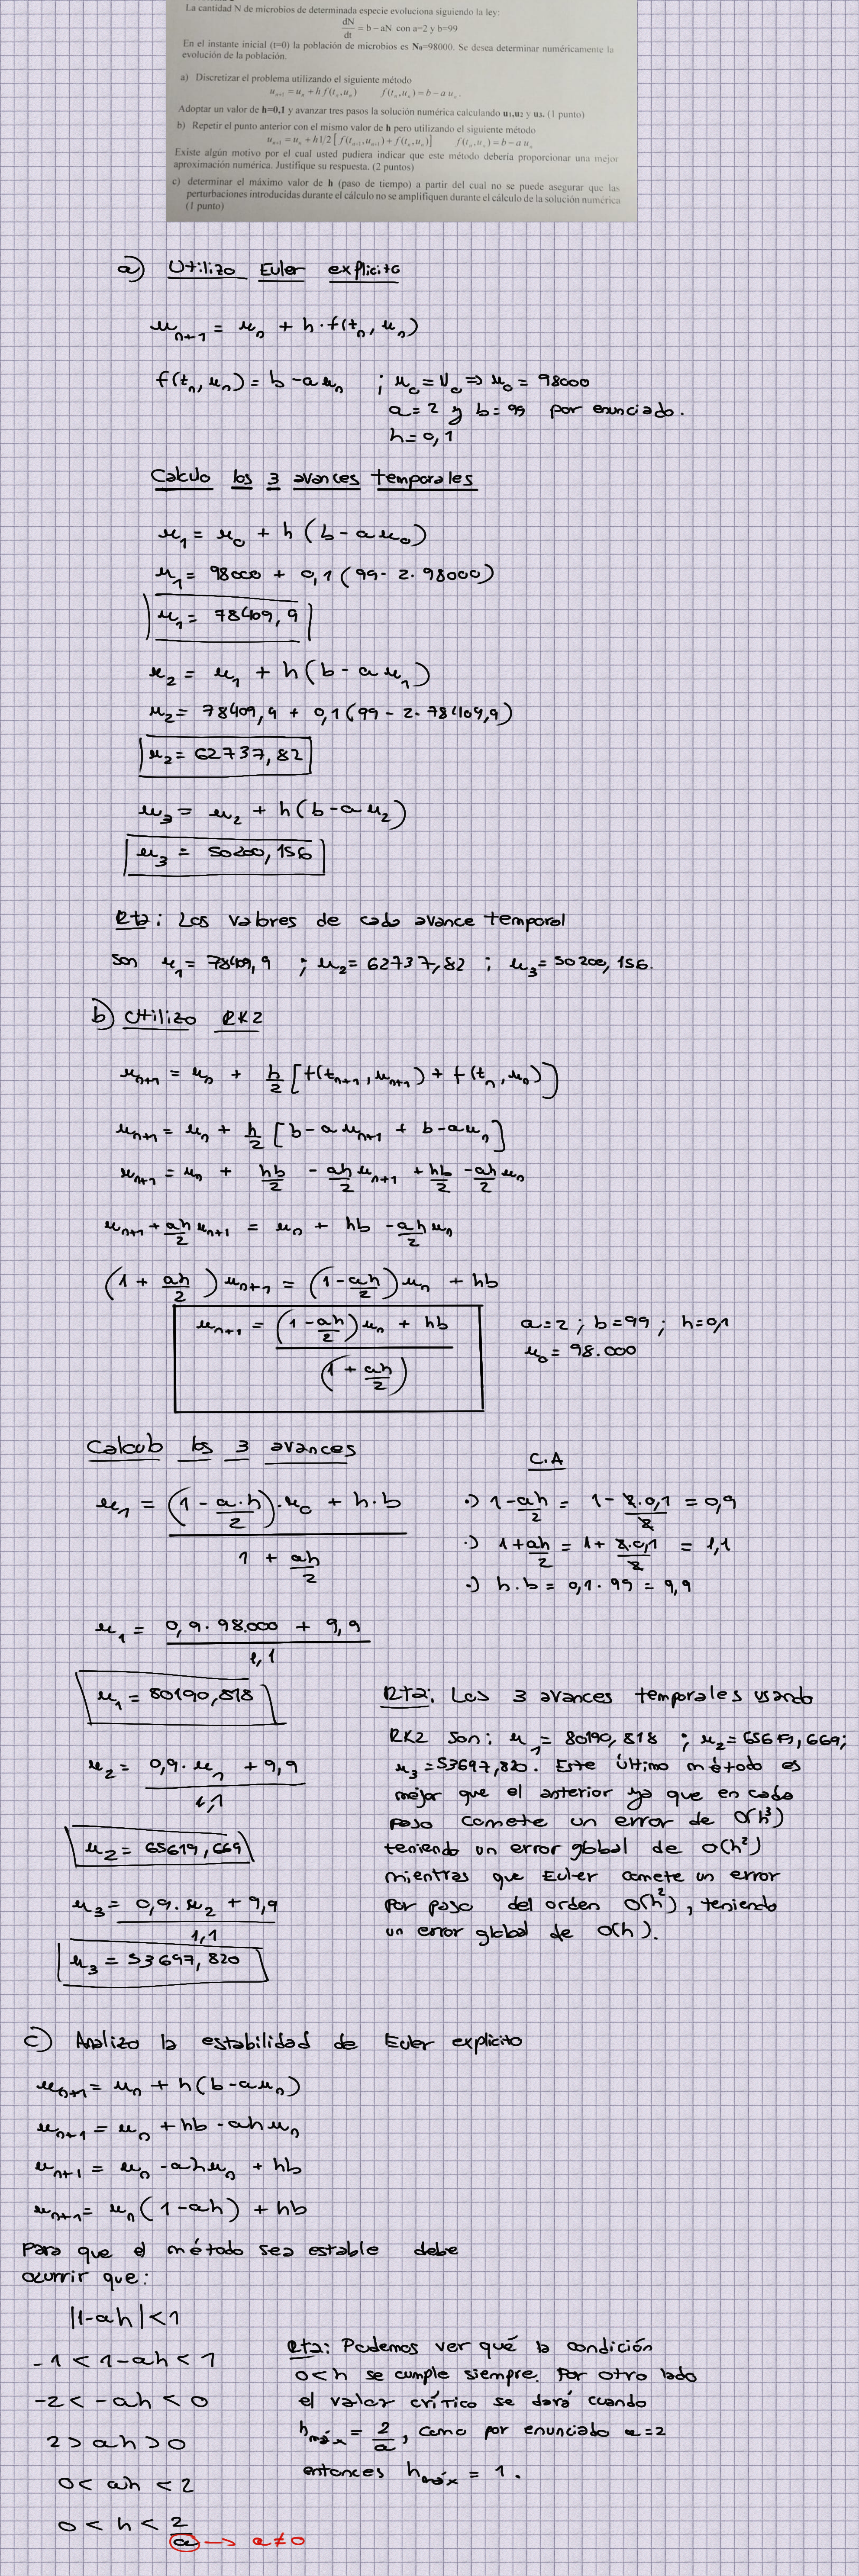 La cantidad N de microbios de determinada especie evoluciona siguiendo la ley:
dN/dt = b – aN con a=2 y b=99
En el instante inicial (t=0) la población de microbios es N₀=98000. Se desea determinar numéricamente la
evolución de la población.
a) Discretizar el problema utilizando el siguiente método
u_{n+1} = u_n + h f(t_n, u_n)    f(t_n, u_n) = b – a u_n.
Adoptar un valor de h=0,1 y avanzar tres pasos la solución numérica calculando u₁,u₂ y u₃. (1 punto)
b) Repetir el punto anterior con el mismo valor de h pero utilizando el siguiente método
u_{n+1} = u_n + h 1/2 [ f(t_{n+1}, u_{n+1}) + f(t_n, u_n) ]    f(t_n, u_n) = b – a u_n
Existe algún motivo por el cual usted pudiera indicar que este método debería proporcionar una mejor
aproximación numérica. Justifique su respuesta. (2 puntos)
c) determinar el máximo valor de h (paso de tiempo) a partir del cual no se puede asegurar que las
perturbaciones introducidas durante el cálculo no se amplifiquen durante el cálculo de la solución numérica
(1 punto)
a) Utilizo Euler explicito
u_{n+1} = u_n + h · f(t_n, u_n)
f(t_n, u_n) = b - a u_n ; u_0 = N_0 => u_0 = 98000
a = 2 y b = 99 por enunciado.
h = 0,1
Calculo los 3 avances temporales
u_1 = u_0 + h (b - a u_0)
u_1 = 98000 + 0,1 (99 - 2 · 98000)
u_1 = 78409,9
u_2 = u_1 + h (b - a u_1)
u_2 = 78409,9 + 0,1 (99 - 2 · 78409,9)
u_2 = 62737,82
u_3 = u_2 + h (b - a u_2)
u_3 = 50200,156
Rta: Los valores de cada avance temporal
son u_1 = 78409,9 ; u_2 = 62737,82 ; u_3 = 50200,156.
b) Utilizo RK2
u_{n+1} = u_n + h/2 [f(t_{n+1}, u_{n+1}) + f(t_n, u_n)]
u_{n+1} = u_n + h/2 [b - a u_{n+1} + b - a u_n]
u_{n+1} = u_n + hb/2 - ah/2 u_{n+1} + hb/2 - ah/2 u_n
u_{n+1} + ah/2 u_{n+1} = u_n + hb - ah/2 u_n
(1 + ah/2) u_{n+1} = (1 - ah/2) u_n + hb
u_{n+1} = ((1 - ah/2) u_n + hb) / (1 + ah/2)
a = 2 ; b = 99 ; h = 0,1
u_0 = 98.000
Calculo los 3 avances
u_1 = ((1 - a·h/2) · u_0 + h·b) / (1 + ah/2)
C.A
·) 1 - ah/2 = 1 - 2·0,1/2 = 0,9
·) 1 + ah/2 = 1 + 2·0,1/2 = 1,1
·) h·b = 0,1 · 99 = 9,9
u_1 = (0,9 · 98.000 + 9,9) / 1,1
u_1 = 80190,818
u_2 = (0,9 · u_1 + 9,9) / 1,1
u_2 = 65619,669
u_3 = (0,9 · u_2 + 9,9) / 1,1
u_3 = 53697,820
Rta: Los 3 avances temporales usando
RK2 son: u_1 = 80190,818 ; u_2 = 65619,669;
u_3 = 53697,820. Este último método es
mejor que el anterior ya que en cada
paso comete un error de O(h³)
teniendo un error global de O(h²)
mientras que Euler comete un error
por paso del orden O(h²), teniendo
un error global de O(h).
c) Analizo la estabilidad de Euler explicito
u_{n+1} = u_n + h(b - a u_n)
u_{n+1} = u_n + hb - ah u_n
u_{n+1} = u_n - ah u_n + hb
u_{n+1} = u_n (1 - ah) + hb
Para que el método sea estable debe
ocurrir que:
|1 - ah| < 1
-1 < 1 - ah < 1
-2 < -ah < 0
2 > ah > 0
0 < ah < 2
0 < h < 2/a → a ≠ 0
Rta: Podemos ver qué la condición
0 < h se cumple siempre. Por otro lado
el valor crítico se dará cuando
h_máx = 2/a, como por enunciado a = 2
entonces h_máx = 1.